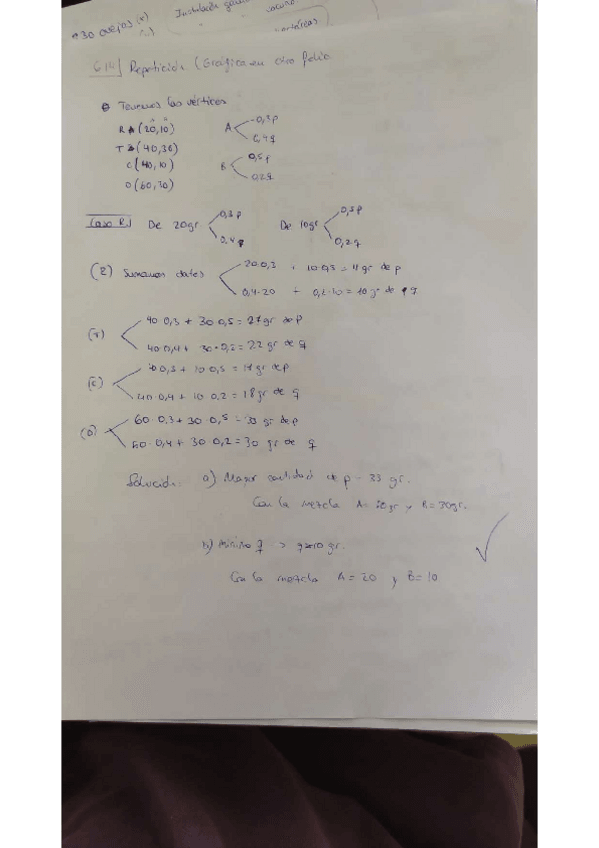 30 ovejas (x) Instalada
6.14 Repetición (Gráfica en otro folio
Tenemos los vértices
R (20,10) A 0,3p
T (40,30) 0,4q
C (40,10) B 0,5p
D (60,30) 0,2q
Caso R. De 20gr 0,3p De 10gr 0,5p
0,4q 0,2q
(R) Sumamos datos 20·0,3 + 10·0,5 = 11 gr de p
0,4·20 + 0,2·10 = 10 gr de q
(T) 40·0,3 + 30·0,5 = 27gr de p
40·0,4 + 30·0,2 = 22 gr de q
(C) 40·0,3 + 10·0,5 = 17 gr de p
40·0,4 + 10·0,2 = 18gr de q
(D) 60·0,3 + 30·0,5 = 33 gr de p
60·0,4 + 30·0,2 = 30 gr de q
Solución: a) Mayor cantidad de p - 33 gr.
Con la mezcla A= gr y B= 30gr.
b) Mínimo q > 10 gr.
Con la mezcla A = 20 y B = 10